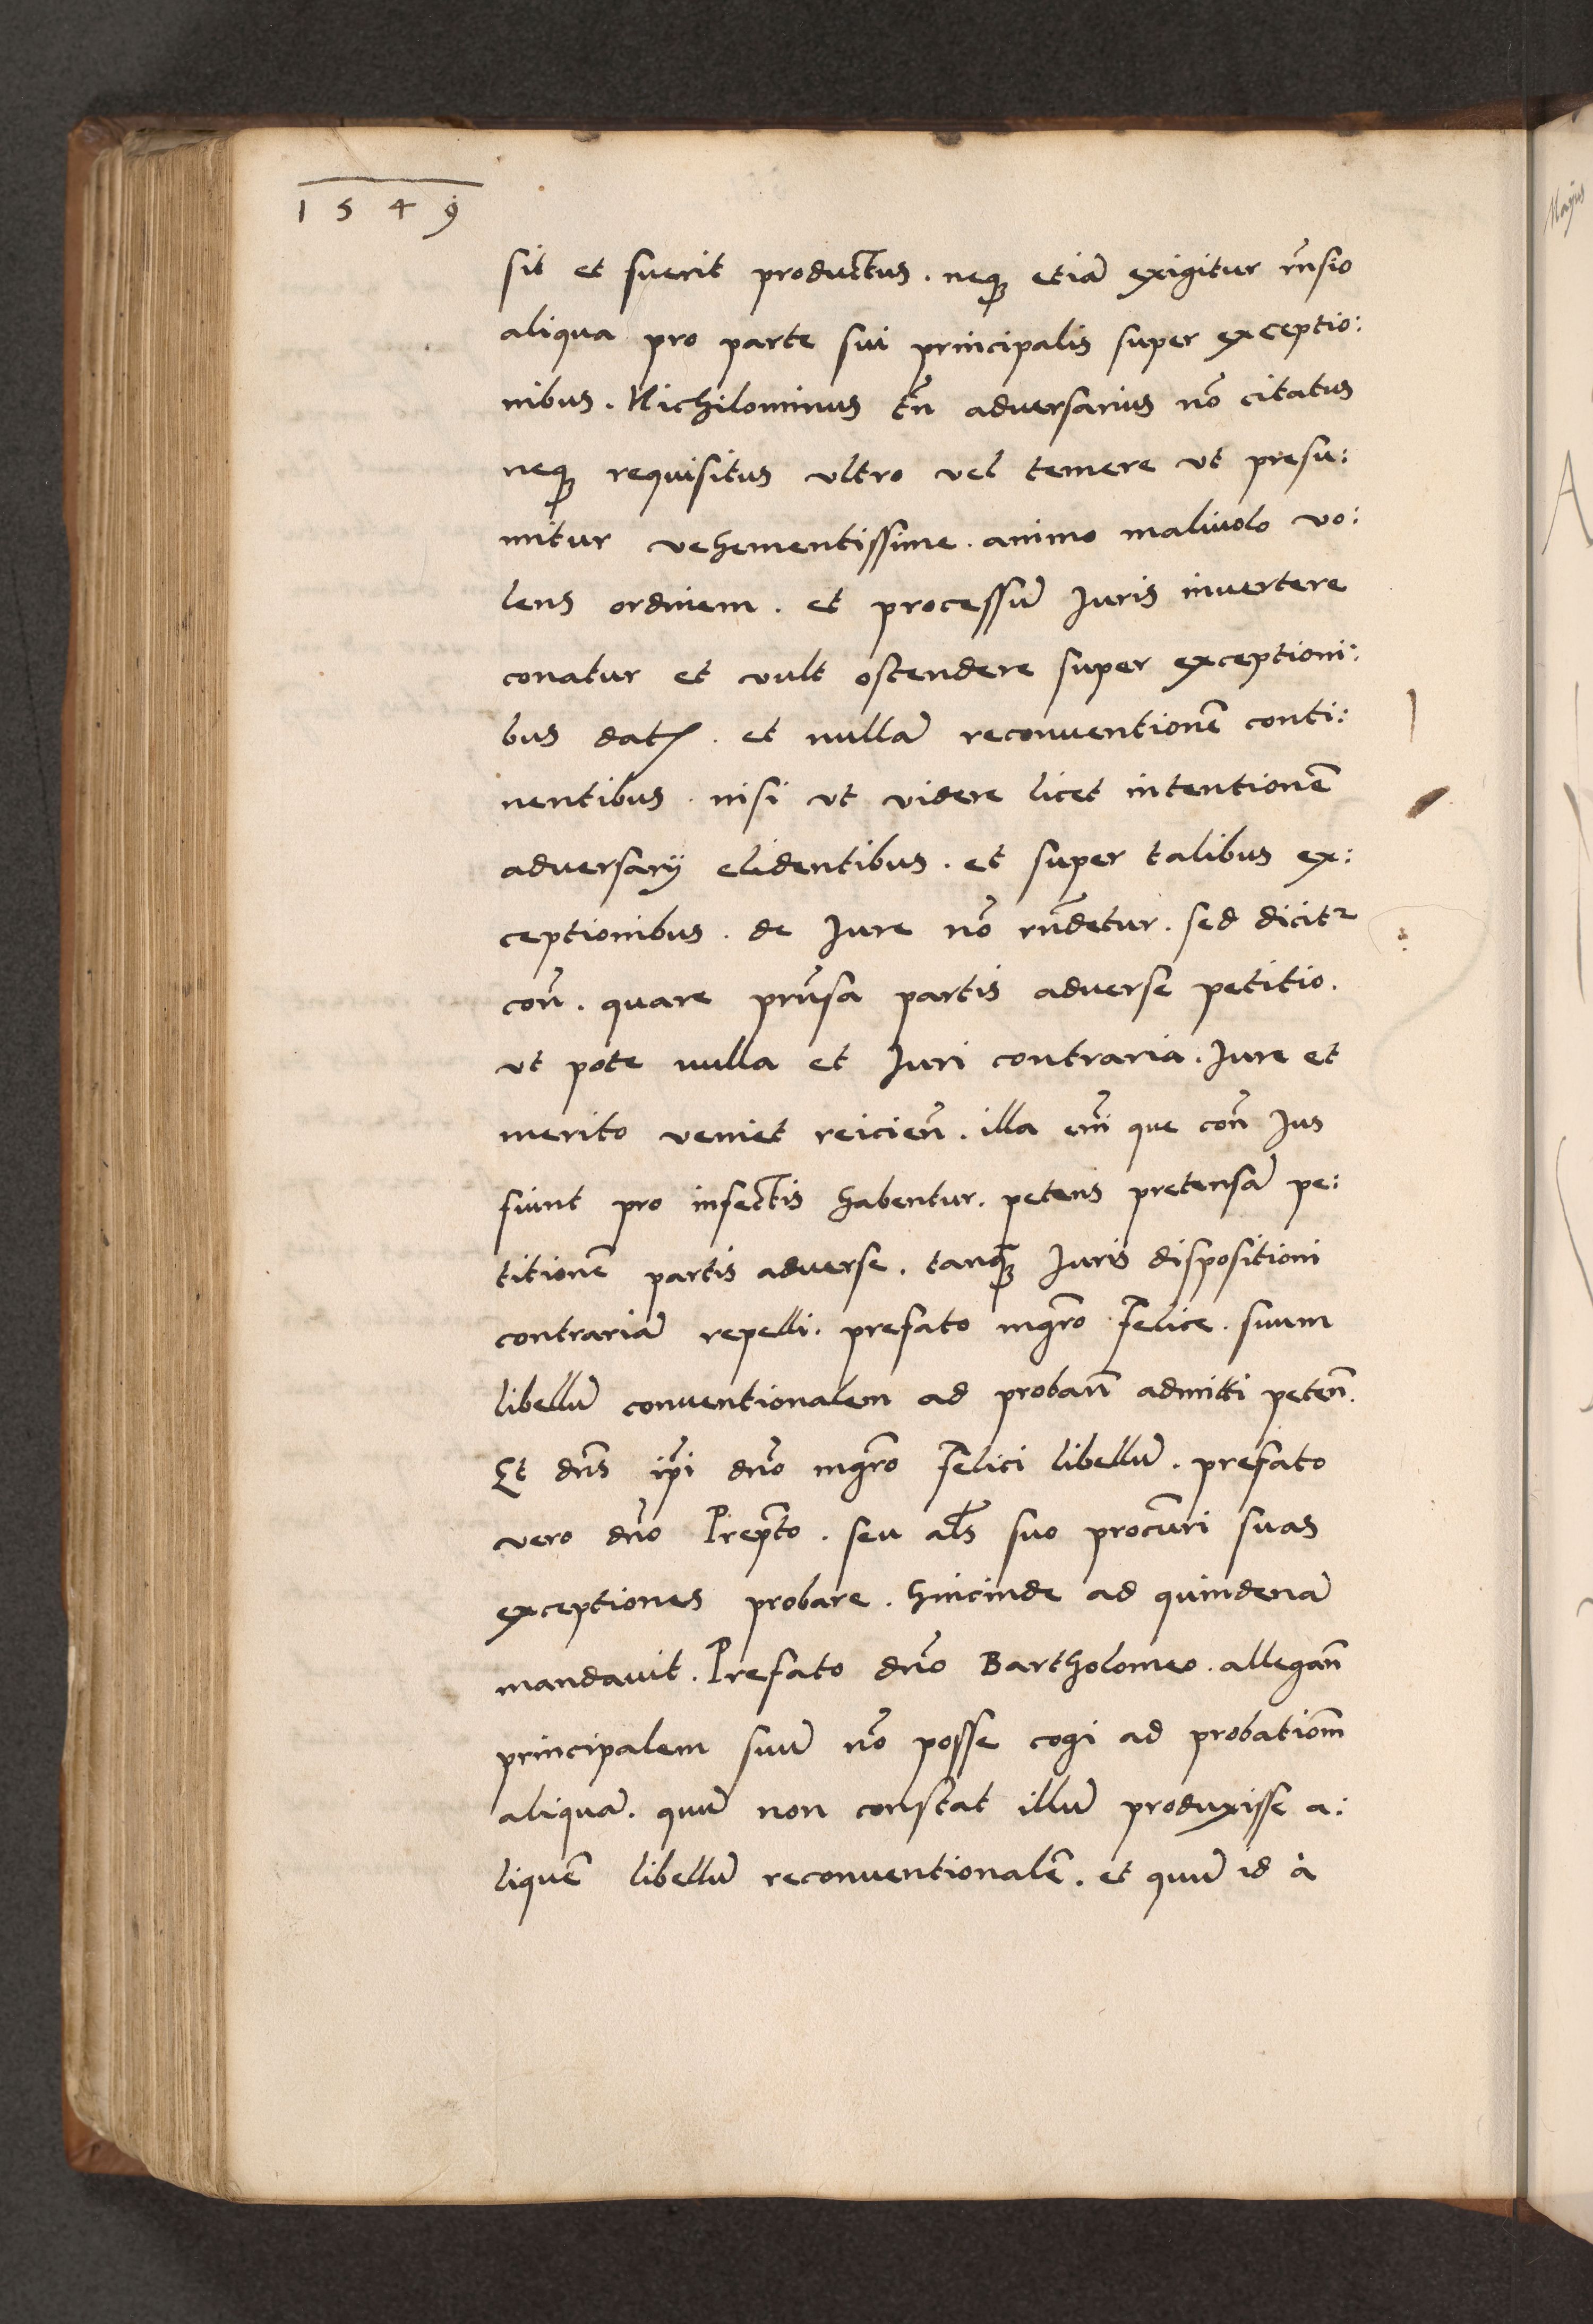 1549
sit et fuerit productus. neqȝ etiā exigitur rn̄sio
aliqua pro parte sui principalis super exceptio:
nibus. Nichilominus tn̄ adversarius nō citatus
neqȝ requisitus vltro vel temere vt presu:
mitur vehementissime. animo malivolo vo:
lens ordinem. et processū Juris invertere
conatur et vult ostendere super exceptioni:
bus dat. et nullā reconventionē conti:
nentibus. nisi vt videre licet intentionē
adversarij elidentibus. et super talibus ex:
ceptionibus. de Jure nō rn̄detur. sed dicitr
con̄. quare prn̄sa partis adverse petitio.
vt pote nulla et Juri contraria. Jure et
merito veniet reicien̄. illa em̄ que con̄ Jus
fiunt pro infectis habentur. petens pretensā pe:
titionē partis adverse. tanqȝ̄ Juris dispositioni
contrariā repelli. prefato mgr̄o Felice. suum
libellū conventionalem ad proban̄ admitti peten̄.
Et dn̄s ip̄i dn̄o mgr̄o Felici libellū. prefato
vero dn̄o Prep̄to. seu al̄s suo procur̄i suas
exceptiones probare. hincinde ad quindenā
mandavit. Prefato dn̄o Bartholomeo. allegan̄
principalem suū nō posse cogi ad probation̄m
aliquā. quū non constat illū produxisse a:
liquē libellū reconventionalē. et quū id à
Majus
A